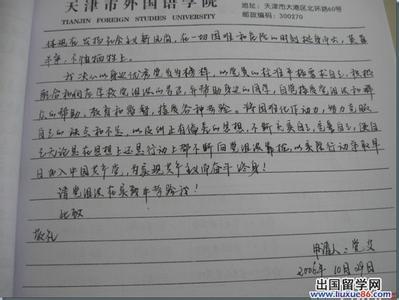 天津市外国语学院
TIANJIN FOREIGN STUDIES UNIVERSITY
地址:天津市大港区北环路60号
邮政编码:300270
体现在发扬社会主义新风尚,在一切困难和危险的时刻挺身而出,英勇
斗争,不怕牺牲上。
我决心以身边优秀党员为榜样,以党员的标准严格要求自己,积极
配合和拥护学校党组织的号召,并帮助身边的同学,自觉接受党组织和群
众的帮助、教育和监督,接受各种考验。将困难化作动力,努力克服
自己的缺点和不足,以及树上有偏差的思想,不断充实自己,完善自己,使自
己无论是在思想上还是行动上都不断向党组织靠拢,以实际行动争取早
日加入中国共产党,为实现共产主义而奋斗终身!
请党组织在实践中考验我!
此致
敬礼
申请人:
2006年10月29日
出国留学网
www.liuxue86.com